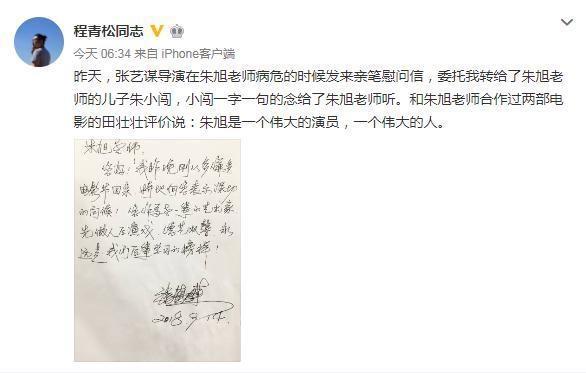 程青松同志
今天 06:34 来自 iPhone客户端
昨天，张艺谋导演在朱旭老师病危的时候发来亲笔慰问信，委托我转给了朱旭老
师的儿子朱小闯，小闯一字一句的念给了朱旭老师听。和朱旭老师合作过两部电
影的田壮壮评价说：朱旭是一个伟大的演员，一个伟大的人。
朱旭老师：
您好！我昨晚刚从多伦多
电影节回来，特此向您表示深切
的问候！您作为老一辈的艺术家
先做人后演戏，德艺双馨，永
远是我们后辈学习的榜样！
2018.9.14.